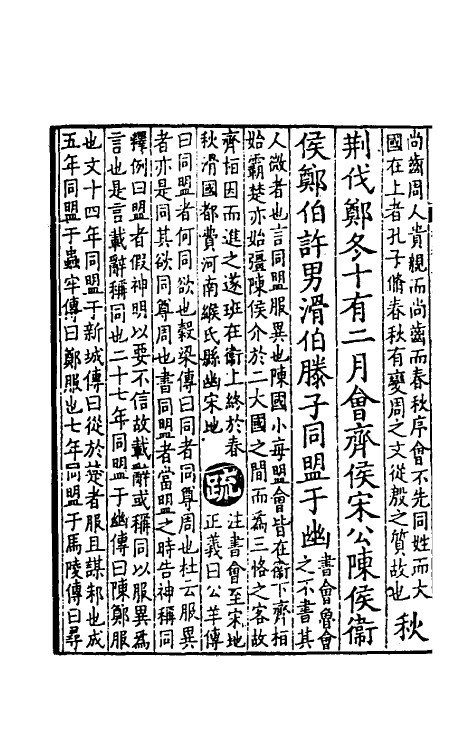 尚齒周人貴親而尚齒而春秋序會不先同姓而大
國在上者孔子脩春秋有變周之文從殷之質故也
秋
荆伐鄭冬十有二月會齊侯宋公陳侯衞
侯鄭伯許男滑伯滕子同盟于幽
書會魯會
之不書其
人微者也言同盟服異也陳國小每盟會皆在衞下齊桓
始霸楚亦始彊陳侯介於二大國之間而爲三恪之客故
齊桓因而進之遂班在衞上終於春
秋滑國都費河南緱氏縣幽宋地
疏
注書會至宋地
正義曰公羊傳
曰同盟者何同欲也穀梁傳曰同者同尊周也杜云服異
者亦是同其欲同尊周也書同盟者當盟之時告神稱同
釋例曰盟者假神明以要不信故載辭或稱同以服異爲
言也是言載辭稱同也二十七年同盟于幽傳曰陳鄭服
也文十四年同盟于新城傳曰從於楚者服且謀邾也成
五年同盟于蟲牢傳曰鄭服也七年同盟于馬陵傳曰尋